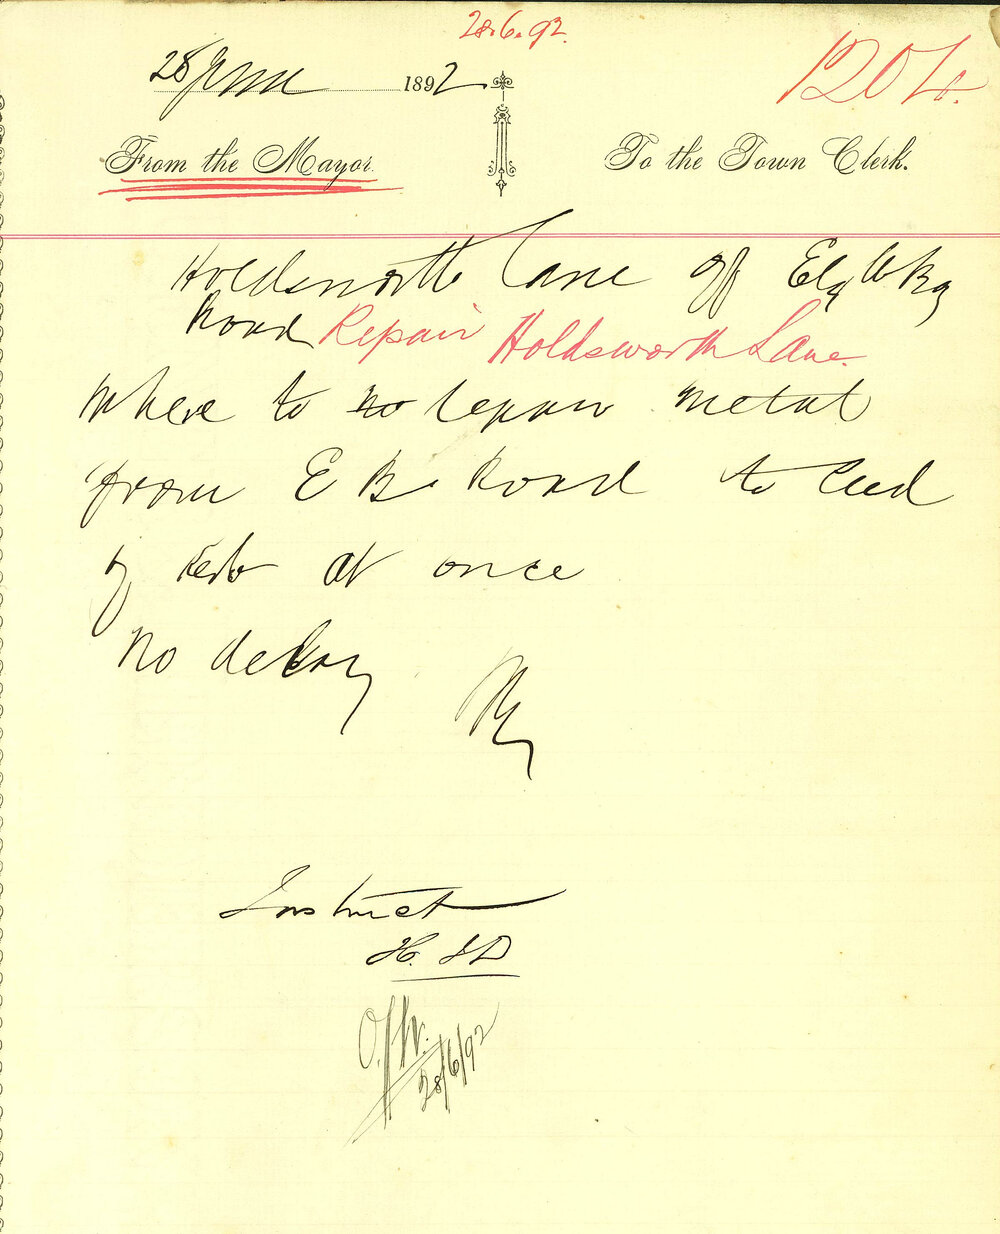 28.6.92.
28 June 1892
1204.
From the Mayor.
To the Town Clerk.
Holdsworth Lane off
Road Repair Holdsworth Lane.
Where to no repair metal
from E B Road to end
of Kerb at once
No delay
Instruct
28/6/92